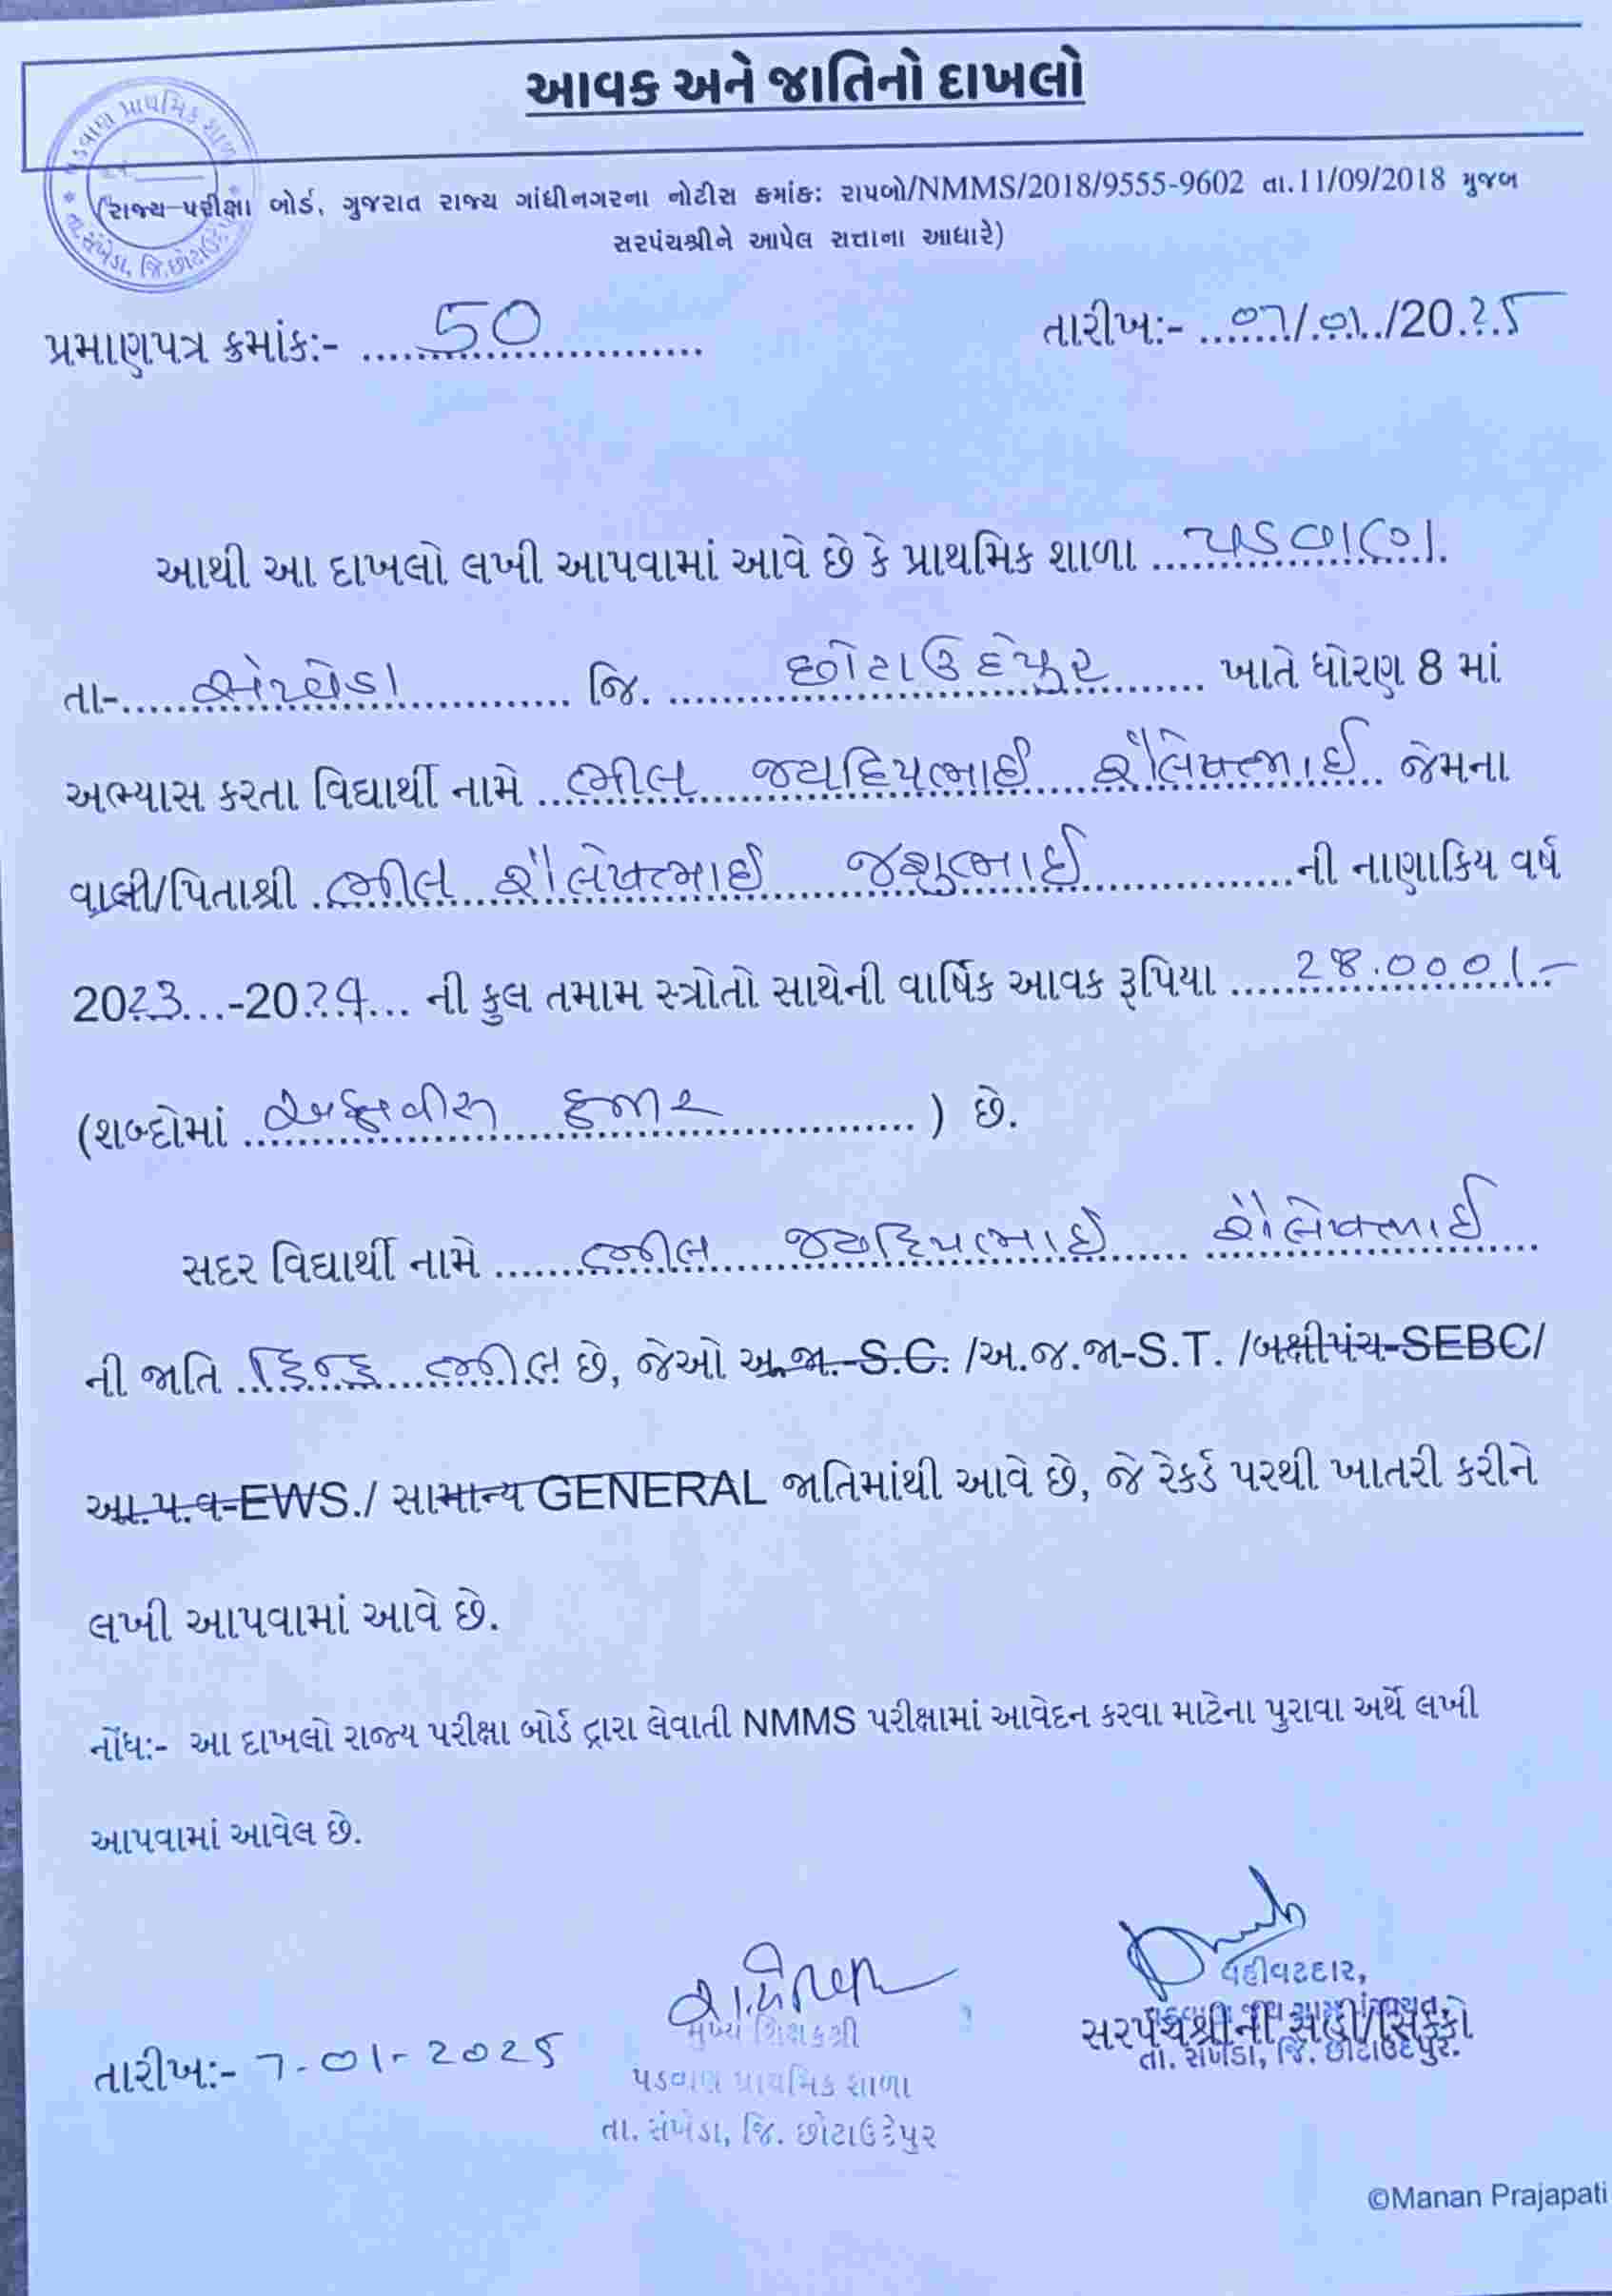 આવક અને જાતિનો દાખલો
પડવાણ પ્રાથમિક શાળા
તા.સંખેડા, જિ.છોટાઉદેપુર
(રાજ્ય પરીક્ષા બોર્ડ, ગુજરાત રાજ્ય ગાંધીનગરના નોટીસ ક્રમાંક: રાપબો/NMMS/2018/9555-9602 તા.11/09/2018 મુજબ
સરપંચશ્રીને આપેલ સત્તાના આધારે)
પ્રમાણપત્ર ક્રમાંક:- 50
તારીખ:- ૦7/૦1/20૨5
આથી આ દાખલો લખી આપવામાં આવે છે કે પ્રાથમિક શાળા પડવાણ
તા- સંખેડા જિ. છોટાઉદેપુર ખાતે ધોરણ 8 માં
અભ્યાસ કરતા વિદ્યાર્થી નામે ભીલ જયદિપભાઈ શૈલેષભાઈ જેમના
વાલી/પિતાશ્રી ભીલ શૈલેષભાઈ જશુભાઈ ની નાણાકિય વર્ષ
20૨3...-20૨૪... ની કુલ તમામ સ્ત્રોતો સાથેની વાર્ષિક આવક રૂપિયા 28.000/-
(શબ્દોમાં અઠ્ઠાવીસ હજાર ) છે.
સદર વિદ્યાર્થી નામે ભીલ જયદિપભાઈ શૈલેષભાઈ
ની જાતિ હિન્દુ ભીલ છે, જેઓ અ.જા.-S.C. /અ.જ.જા-S.T. /બક્ષીપંચ-SEBC/
આ.પ.વ-EWS./ સામાન્ય GENERAL જાતિમાંથી આવે છે, જે રેકર્ડ પરથી ખાતરી કરીને
લખી આપવામાં આવે છે.
નોંધ:- આ દાખલો રાજ્ય પરીક્ષા બોર્ડ દ્વારા લેવાતી NMMS પરીક્ષામાં આવેદન કરવા માટેના પુરાવા અર્થે લખી
આપવામાં આવેલ છે.
તારીખ:- 7-01-2025
મુખ્ય શિક્ષકશ્રી
પડવાણ પ્રાથમિક શાળા
તા. સંખેડા, જિ. છોટાઉદેપુર
વહીવટદાર,
સરપંચશ્રીની સહી/સિક્કો
તા. સંખેડા, જિ. છોટાઉદેપુર.
©Manan Prajapati